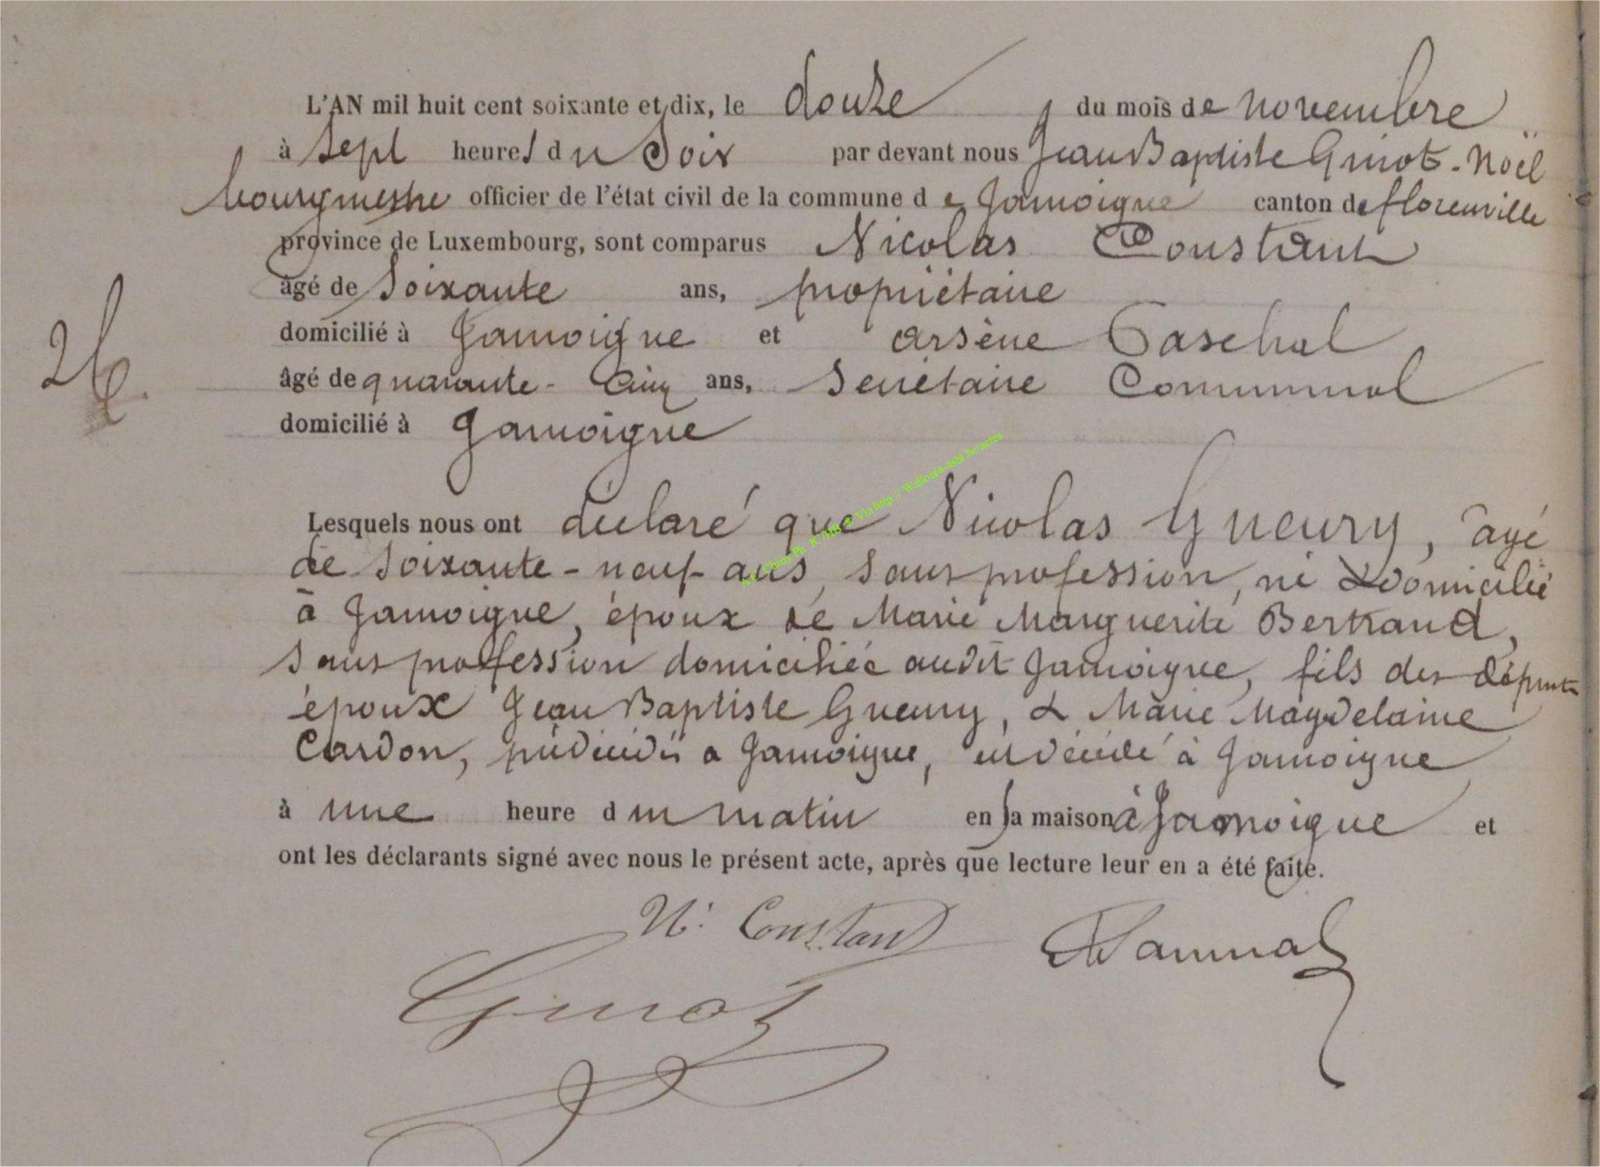 L'AN mil huit cent soixante et dix, le douze du mois de novembre
à sept heures du Soir par devant nous Jean Baptiste Guiot-Noël
bourgmestre officier de l'état civil de la commune de Jamoigne canton de florenville
province de Luxembourg, sont comparus Nicolas Constant
âgé de Soixante ans, propriétaire
domicilié à Jamoigne et arsène
26.
âgé de quarante-Cinq ans, Secrétaire Communal
domicilié à Jamoigne
Lesquels nous ont déclaré que Nicolas Gueury, âgé
de Soixante-neuf ans, Sans profession, né & domicilié
à Jamoigne, époux de Marie Marguerite Bertrand,
Sans profession domiciliée audit Jamoigne, fils des défunts
époux Jean Baptiste Gueury, & Marie Magdelaine
Cardon, prédécédés à Jamoigne, est décédé à Jamoigne
à une heure du matin en sa maison à Jamoigne et
ont les déclarants signé avec nous le présent acte, après que lecture leur en a été faite.
N. Constant
Guiot